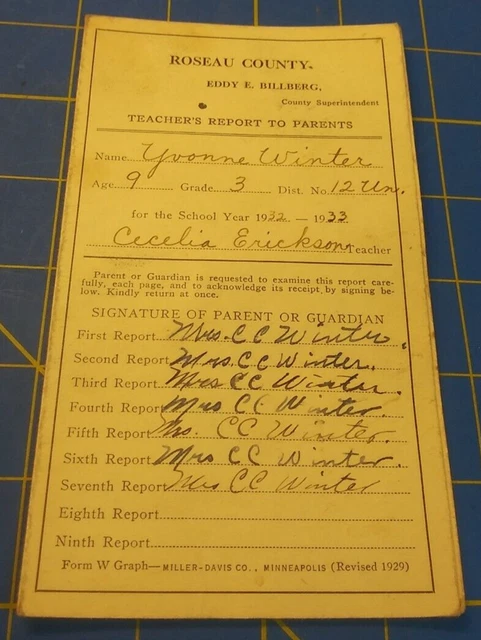 ROSEAU COUNTY.
EDDY E. BILLBERG,
County Superintendent
TEACHER'S REPORT TO PARENTS
Name Yvonne Winter
Age 9 Grade 3 Dist. No. 12 Un.
for the School Year 1932 — 1933
Cecelia Erickson, Teacher
Parent or Guardian is requested to examine this report care-
fully, each page, and to acknowledge its receipt by signing be-
low. Kindly return at once.
SIGNATURE OF PARENT OR GUARDIAN
First Report Mrs. C C Winter.
Second Report Mrs. C C Winter.
Third Report Mrs C C Winter.
Fourth Report Mrs C C Winter
Fifth Report Mrs. C C Winter.
Sixth Report Mrs C C Winter.
Seventh Report Mrs C C Winter
Eighth Report
Ninth Report
Form W Graph—MILLER-DAVIS CO., MINNEAPOLIS (Revised 1929)